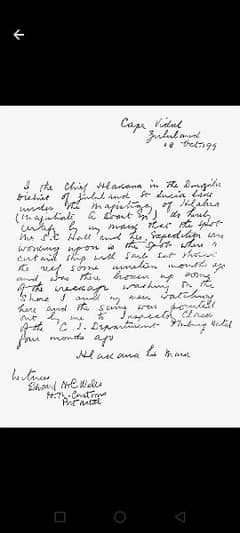 Cape Vidal
Zululand
18 Oct. 1899
I the Chief Hlawana in the
District of Zululand St Lucia Lake
under the Magistracy of Hlabisa
(Magistrate ) do hereby
certify by my mark that the spot
Mr S.C. Hall and his expedition are
working upon is the spot where a
certain ship with sails set struck
the reef some nineteen months ago
and was there broken up some
of the wreckage washing on the
shore I and my men watching
here and the same was pointed
out by me to Inspector Clark
of the C.I. Department P.M.burg Natal
four months ago
Hlawana his Mark
Witness
Edward N.C. Wells
H.M. Customs
Port Natal